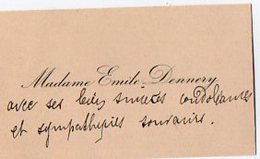 Madame Emile Dennery
avec ses bien sincères condoléances
et sympathiques souvenirs.